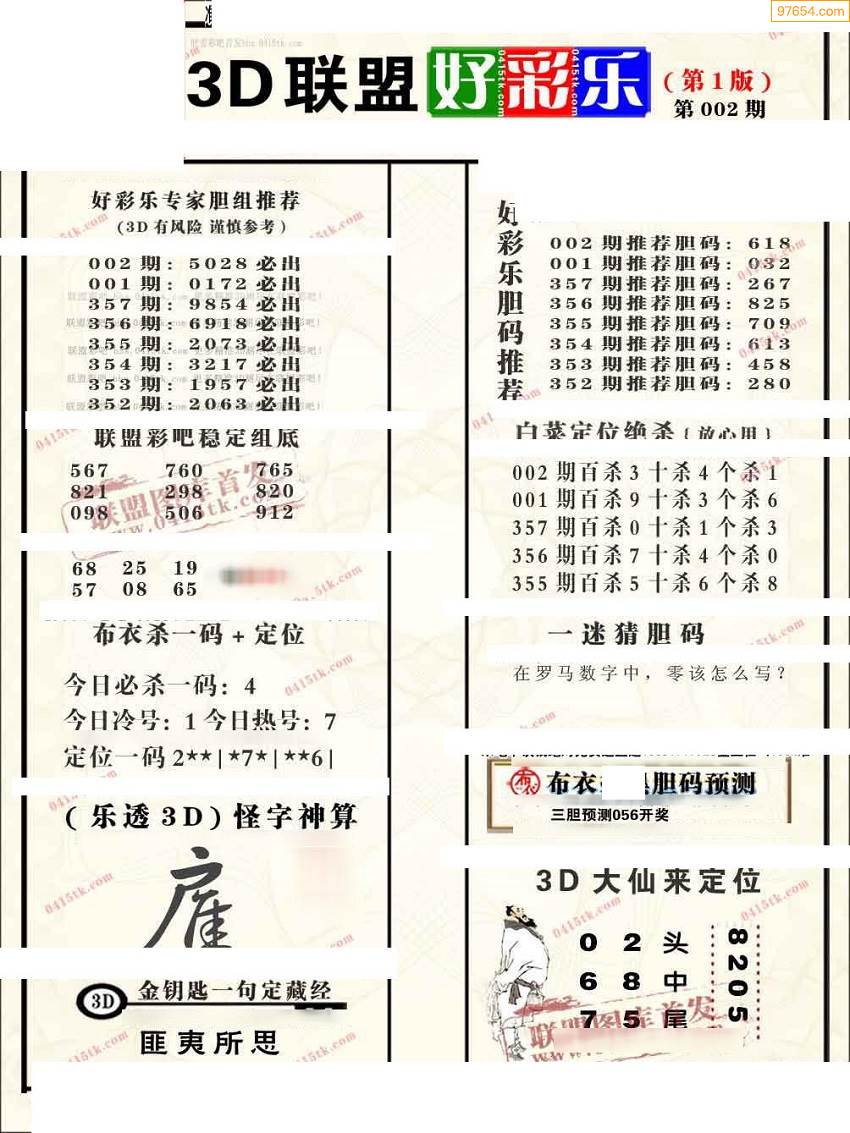 97654.com
3D联盟 好彩乐 (第1版)
第002期
好彩乐专家胆组推荐
(3D有风险 谨慎参考)
002期: 5028必出
001期: 0172必出
357期: 9854必出
356期: 6918必出
355期: 2073必出
354期: 3217必出
353期: 1957必出
352期: 2063必出
联盟彩吧稳定组底
567 760 765
821 298 820
098 506 912
68 25 19
57 08 65
布衣杀一码+定位
今日必杀一码: 4
今日冷号: 1 今日热号: 7
定位一码 2**|*7*|**6|
(乐透3D)怪字神算
3D 金钥匙一句定藏经
匪夷所思
好彩乐胆码推荐
002期推荐胆码: 618
001期推荐胆码: 032
357期推荐胆码: 267
356期推荐胆码: 825
355期推荐胆码: 709
354期推荐胆码: 613
353期推荐胆码: 458
352期推荐胆码: 280
白菜定位绝杀{放心用}
002期百杀3十杀4个杀1
001期百杀9十杀3个杀6
357期百杀0十杀1个杀3
356期百杀7十杀4个杀0
355期百杀5十杀6个杀8
一迷猜胆码
在罗马数字中，零该怎么写?
布衣 胆码预测
三胆预测056开奖
3D大仙来定位
0 2 头
6 8 中
7 5 尾
8205
联盟图库首发
www.0415tk.com
0415tk.com